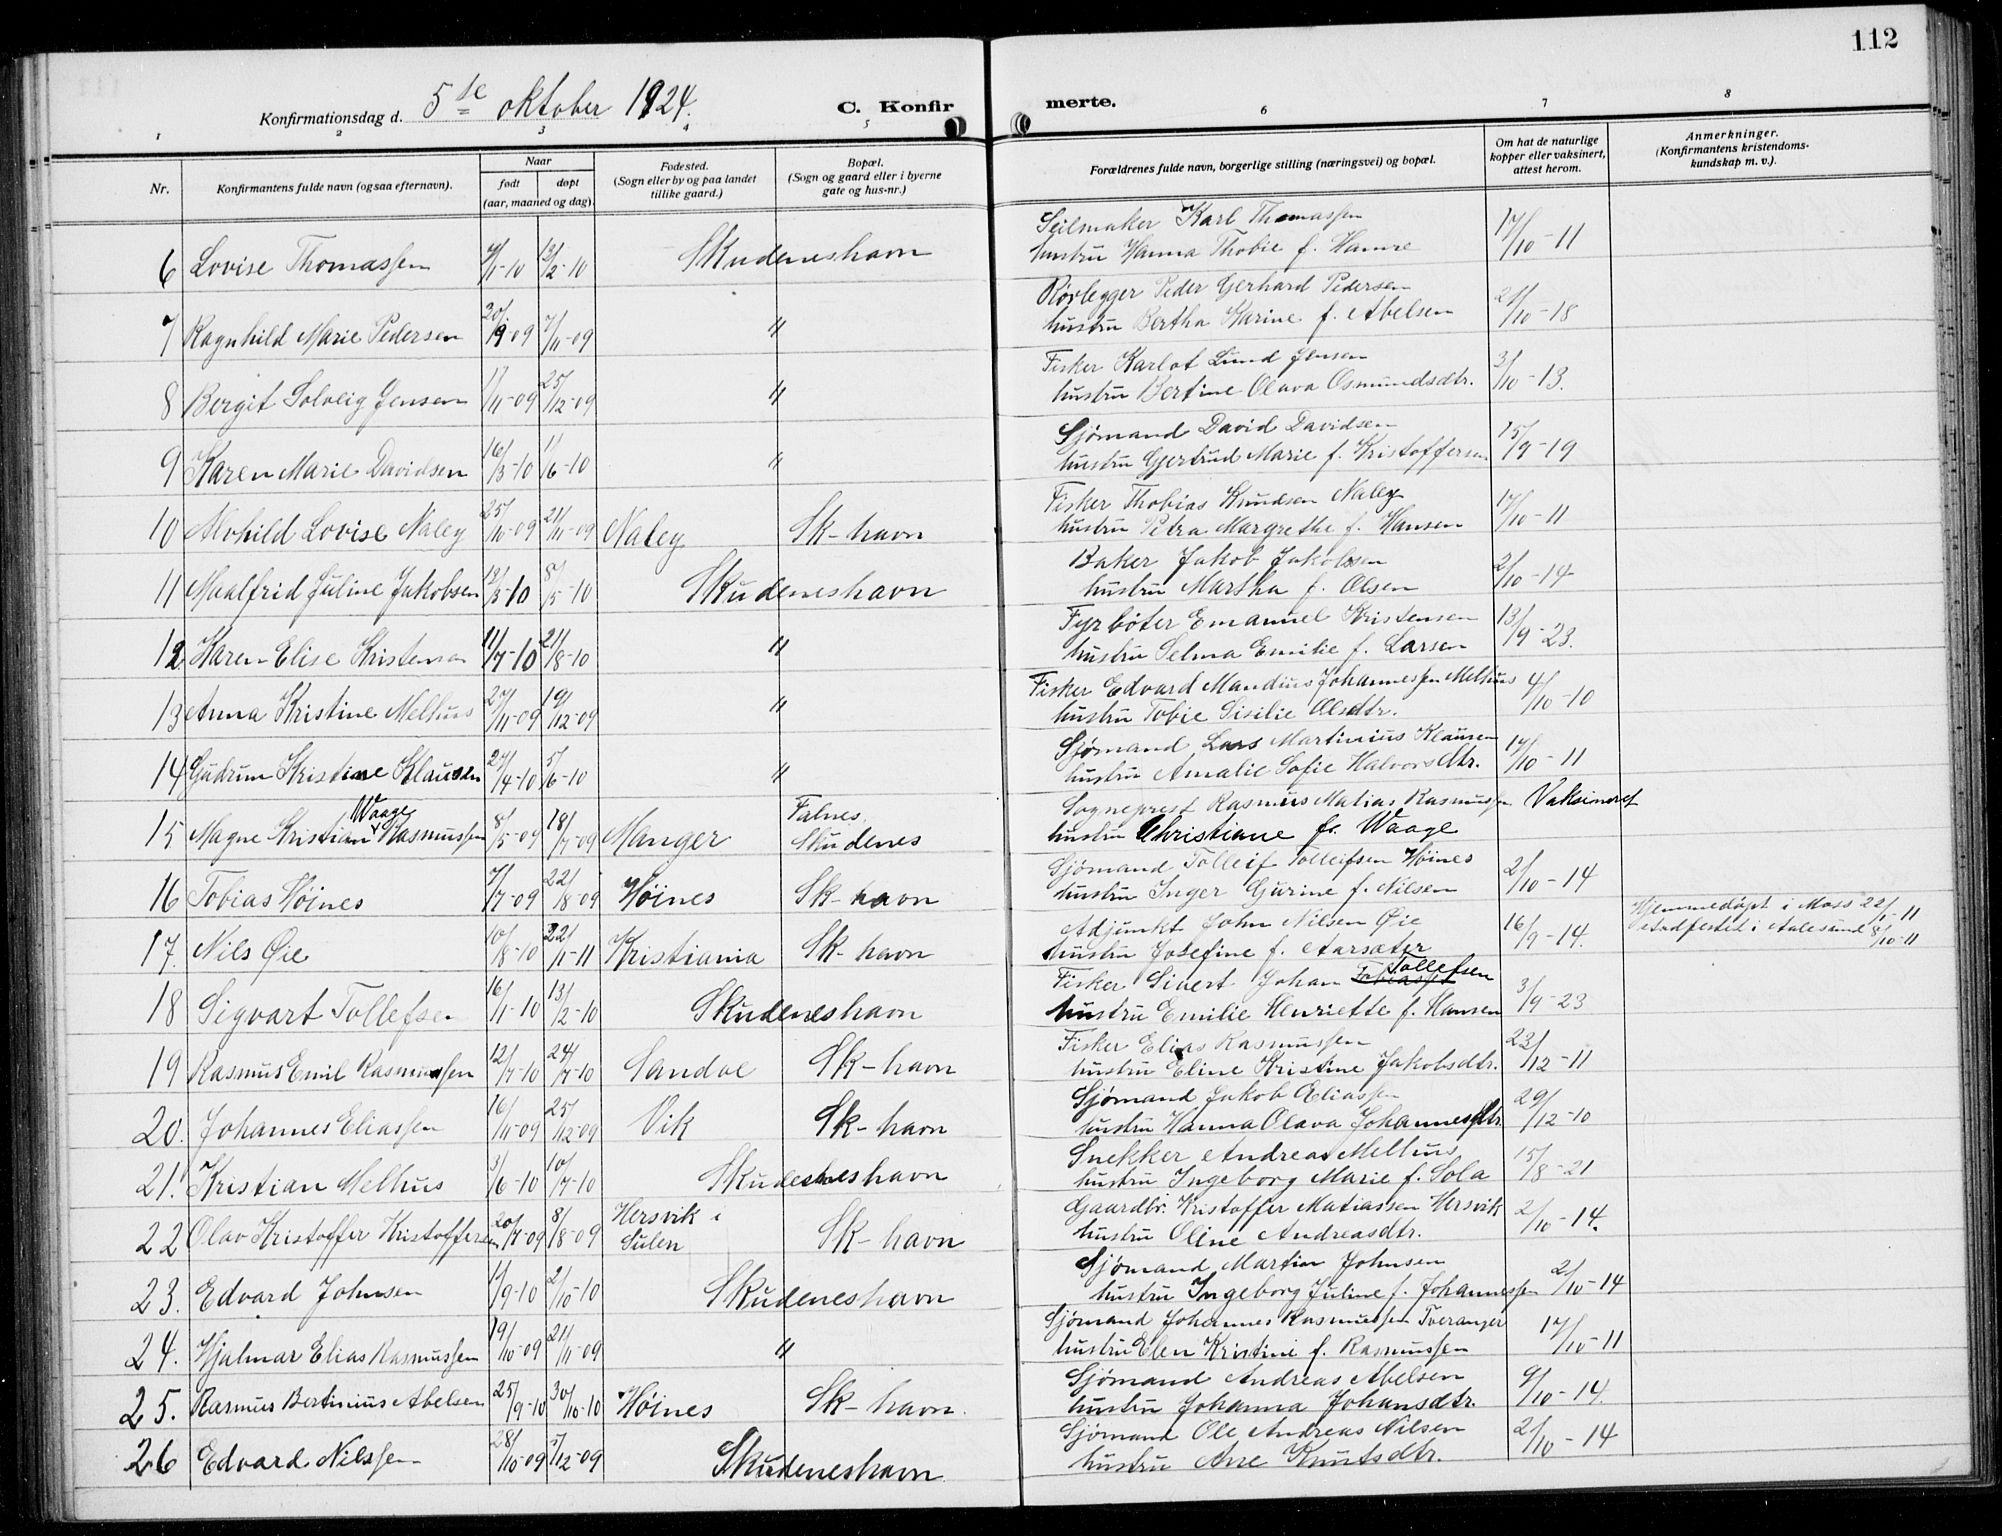 112
Konfirmationsdag d. 5te oktober 1924.
C. Konfirmerte.
1 2 3 4 5 6 7 8
Nr.
Konfirmantens fulde navn (ogsaa efternavn).
Naar
født
døpt
(aar, maaned og dag).
Fødested.
(Sogn eller by og paa landet
tillike gaard.)
Bopæl.
(Sogn og gaard eller i byerne
gate og hus-nr.)
Forældrenes fulde navn, borgerlige stilling (næringsvei) og bopæl.
Om hat de naturlige
kopper eller vaksinert,
attest herom.
Anmerkninger.
(Konfirmantens kristendoms-
kundskap m. v.).
6 Lovise Thomassen /1-10 13/2-10 Skudeneshavn Seilmaker Karl Thomassen 17/10-11
hustru Hanna Thobie f. Hamre
7 Ragnhild Marie Pedersen 20/9-09 7/11-09 " Rørlegger Peder Gerhard Pedersen 21/10-18
hustru Bertha Karine f. Abelsen
8 Bergit Solveig Jensen 17/11-09 25/12-09 " Fisker Karlot Lund Jensen 3/10-13.
hustru Bertine Olava Osmundsdtr.
9 Karen Marie Davidsen 16/3-10 11/6-10 " Sjømand David Davidsen 15/9-19
hustru Gjertrud Marie f. Kristoffersen
10 Alvhild Lovise Naley 25/10-09 21/11-09 Naley Sk-havn Fisker Thobias Knudsen Naley 17/10-11
hustru Petra Margrethe f. Hansen
11 Maalfrid Juline Jakobsen 12/3-10 8/5-10 Skudeneshavn Baker Jakob Jakobsen 2/10-14
hustru Martha f. Olsen
12. Karen Elise Kristensen 11/7-10 21/8-10 " Fyrbøter Emanuel Kristensen 13/9-23.
hustru Selma Emilie f. Larsen
13 Anna Kristine Melhus 27/11-09 19/12-09 " Fisker Edvard Mandius Johannessen Melhus 4/10-10
hustru Tobie Sisilie Olsdtr.
14 Gudrun Kristine Klausen 24/4-10 5/6-10 " Sjømand Lars Martinius Klausen 17/10-11
hustru Amalie Sofie Halvorsdtr.
15 Magne Kristian Waage Rasmussen 8/5-09 18/7-09 Manger Falnes, Skudenes Sogneprest Rasmus Matias Rasmussen Vaksineret
hustru Christiane f. Waage
16 Tobias Høines 7/7-09 22/8-09 Høines Sk-havn Sjømand Tolleif Tolleifsen Høines 2/10-14
hustru Inger Gurine f. Nilsen
17. Nils Øie 10/8-10 22/1-11 Kristiania Sk-havn Adjunkt John Nilsen Øie 16/9-14. Hjemmedøpt i Moss 22/1-11
hustru Josefine f. Aarsæter Stadfestet i Aalesund 8/10-11
18 Sigvart Tollefsen 16/1-10 13/2-10 Skudeneshavn Fisker Sivert Johan Tobiassen Tollefsen 3/9-23
hustru Emilie Henriette f. Hansen
19 Rasmus Emil Rasmussen 12/7-10 24/7-10 Sandve Sk-havn Fisker Elias Rasmussen 23/12-11
hustru Eline Kristine Jakobsdtr.
20. Johannes Eliassen 16/11-09 25/12-09 Vik Sk-havn Sjømand Jakob Eliassen 29/12-10
hustru Hanna Olava Johannesdtr.
21. Kristian Melhus 3/6-10 10/7-10 Skudeneshavn Snekker Andreas Melhus 15/8-21
hustru Ingeborg Marie f. Sola
22 Olav Kristoffer Kristoffersen 20/7-09 8/8-09 Hersvik i Sulen Sk-havn Gaardbr. Kristoffer Matiassen Hersvik 2/10-14.
hustru Oline Andreasdtr.
23. Edvard Johnsen 11/9-10 2/10-10 Skudeneshavn Sjømand Martin Johnsen 2/10-14
hustru Ingeborg Juline f. Johannessen
24. Hjalmar Elias Rasmussen 19/10-09 21/11-09 " Sjømand Johannes Rasmussen Tveranger 17/10-11
hustru Elen Kristine f. Rasmussen
25. Rasmus Bertinius Abelsen 25/9-10 30/10-10 Høines Sk-havn. Sjømand Andreas Abelsen 9/10-14.
hustru Johanna Johansdtr.
26 Edvard Nilssen 28/10-09 5/12-09 Skudeneshavn Sjømand Ole Andreas Nilsen 2/10-14
hustru Ane Knutsdtr.